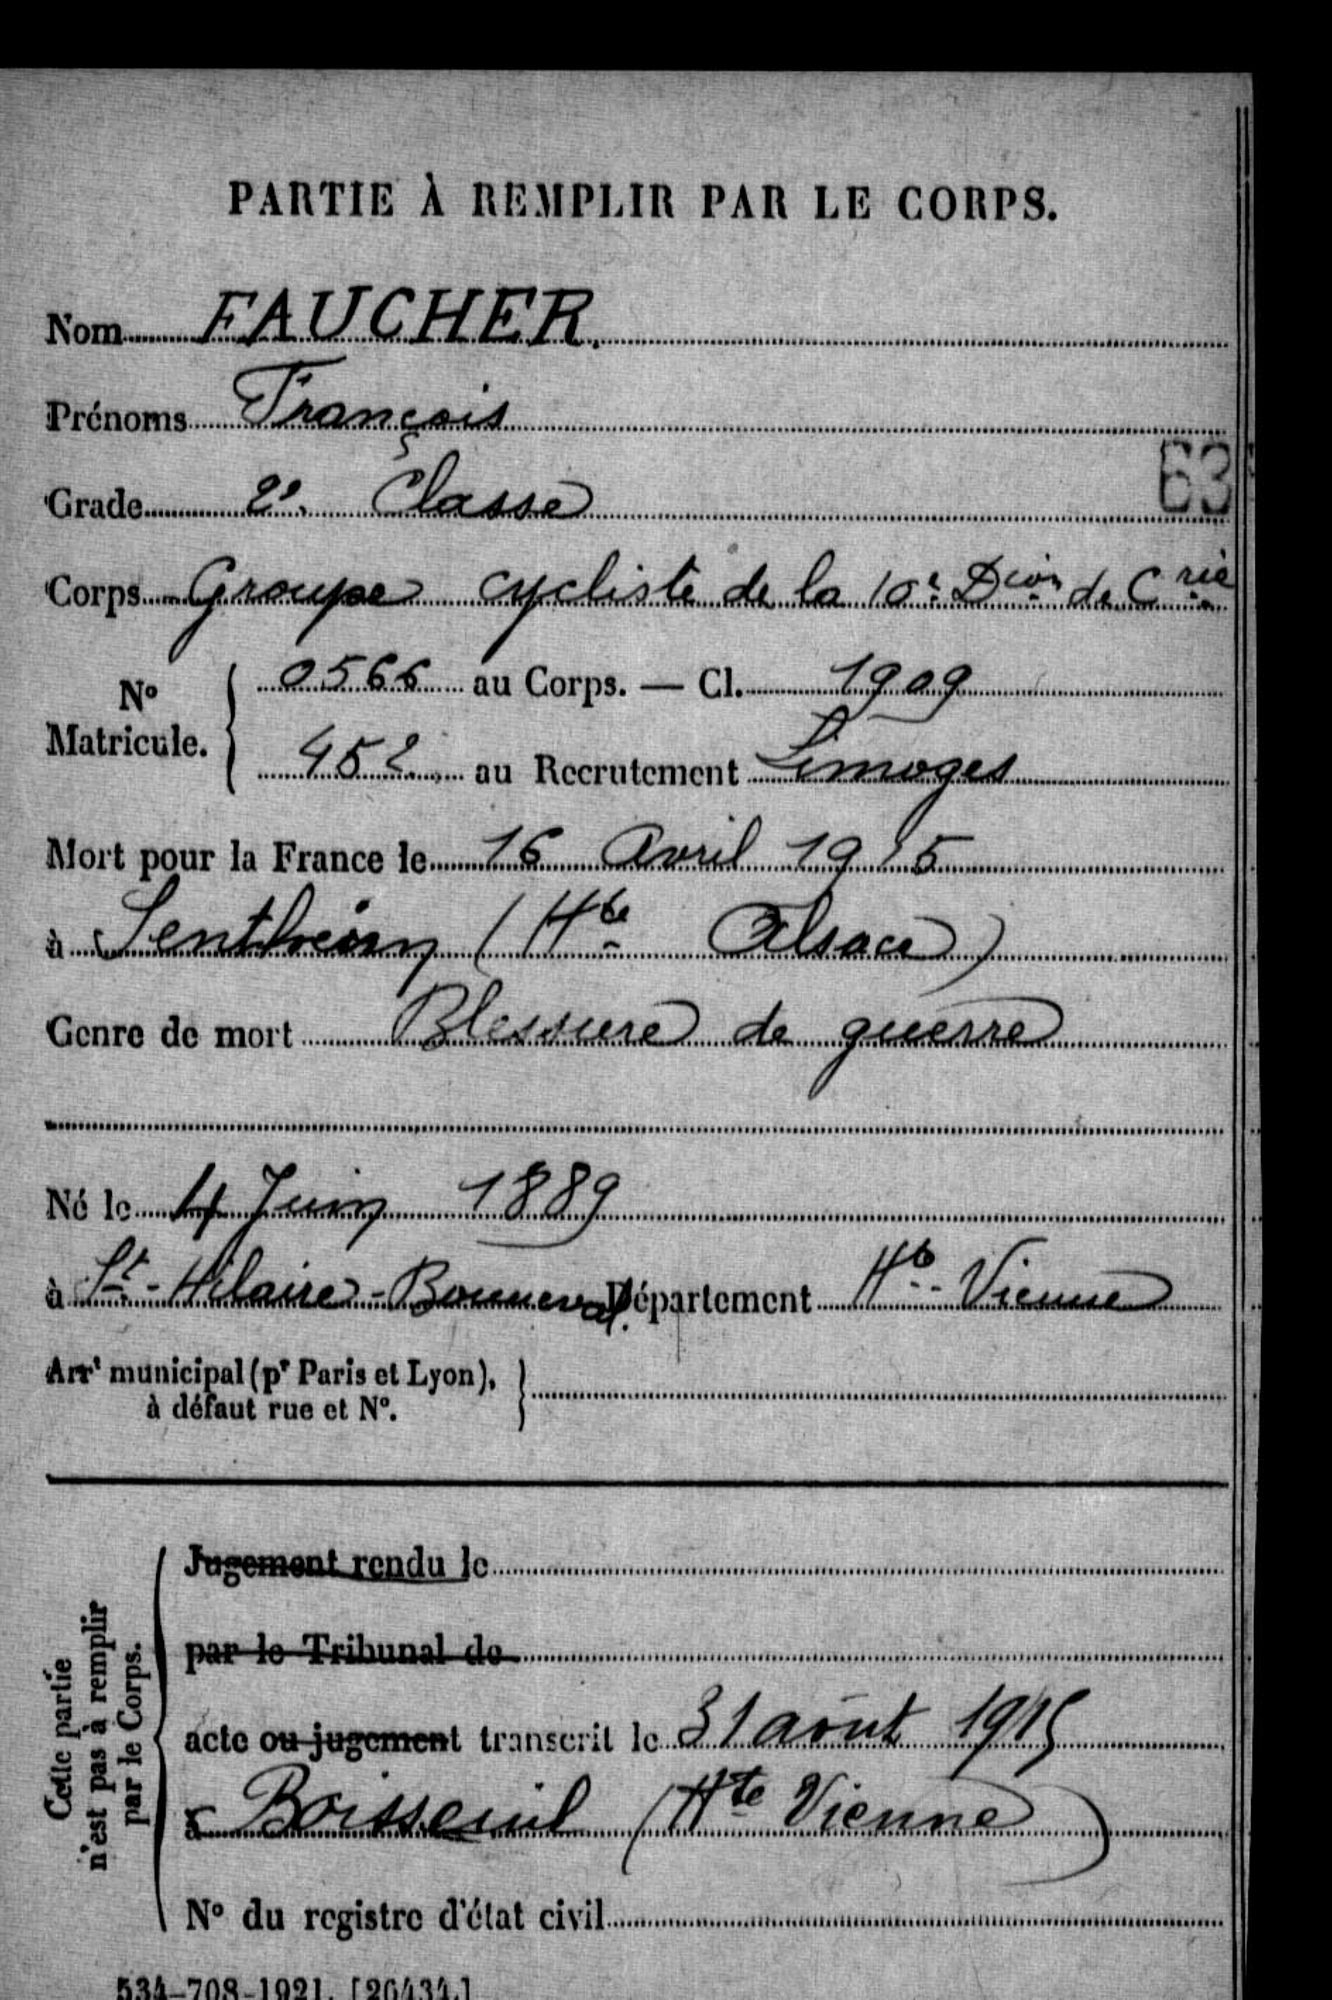 PARTIE À REMPLIR PAR LE CORPS.
Nom FAUCHER.
Prénoms François
63
Grade 2e. Classe
Corps Groupe cycliste de la 10e Dion de Crie
No Matricule. 0566 au Corps. — Cl. 1909
452 au Recrutement Limoges
Mort pour la France le 16 Avril 1915
à Sentheim (Hte Alsace)
Genre de mort Blessure de guerre
Né le 4 Juin 1889
à St-Hilaire-Bonneval. Département Hte-Vienne
Arrt municipal (pr Paris et Lyon),
à défaut rue et No.
Cette partie
n'est pas à remplir
par le Corps.
Jugement rendu le
par le Tribunal de
acte ou jugement transcrit le 31 août 1915
à Boisseuil (Hte Vienne)
No du registre d'état civil
534-708-1921. [26434.]